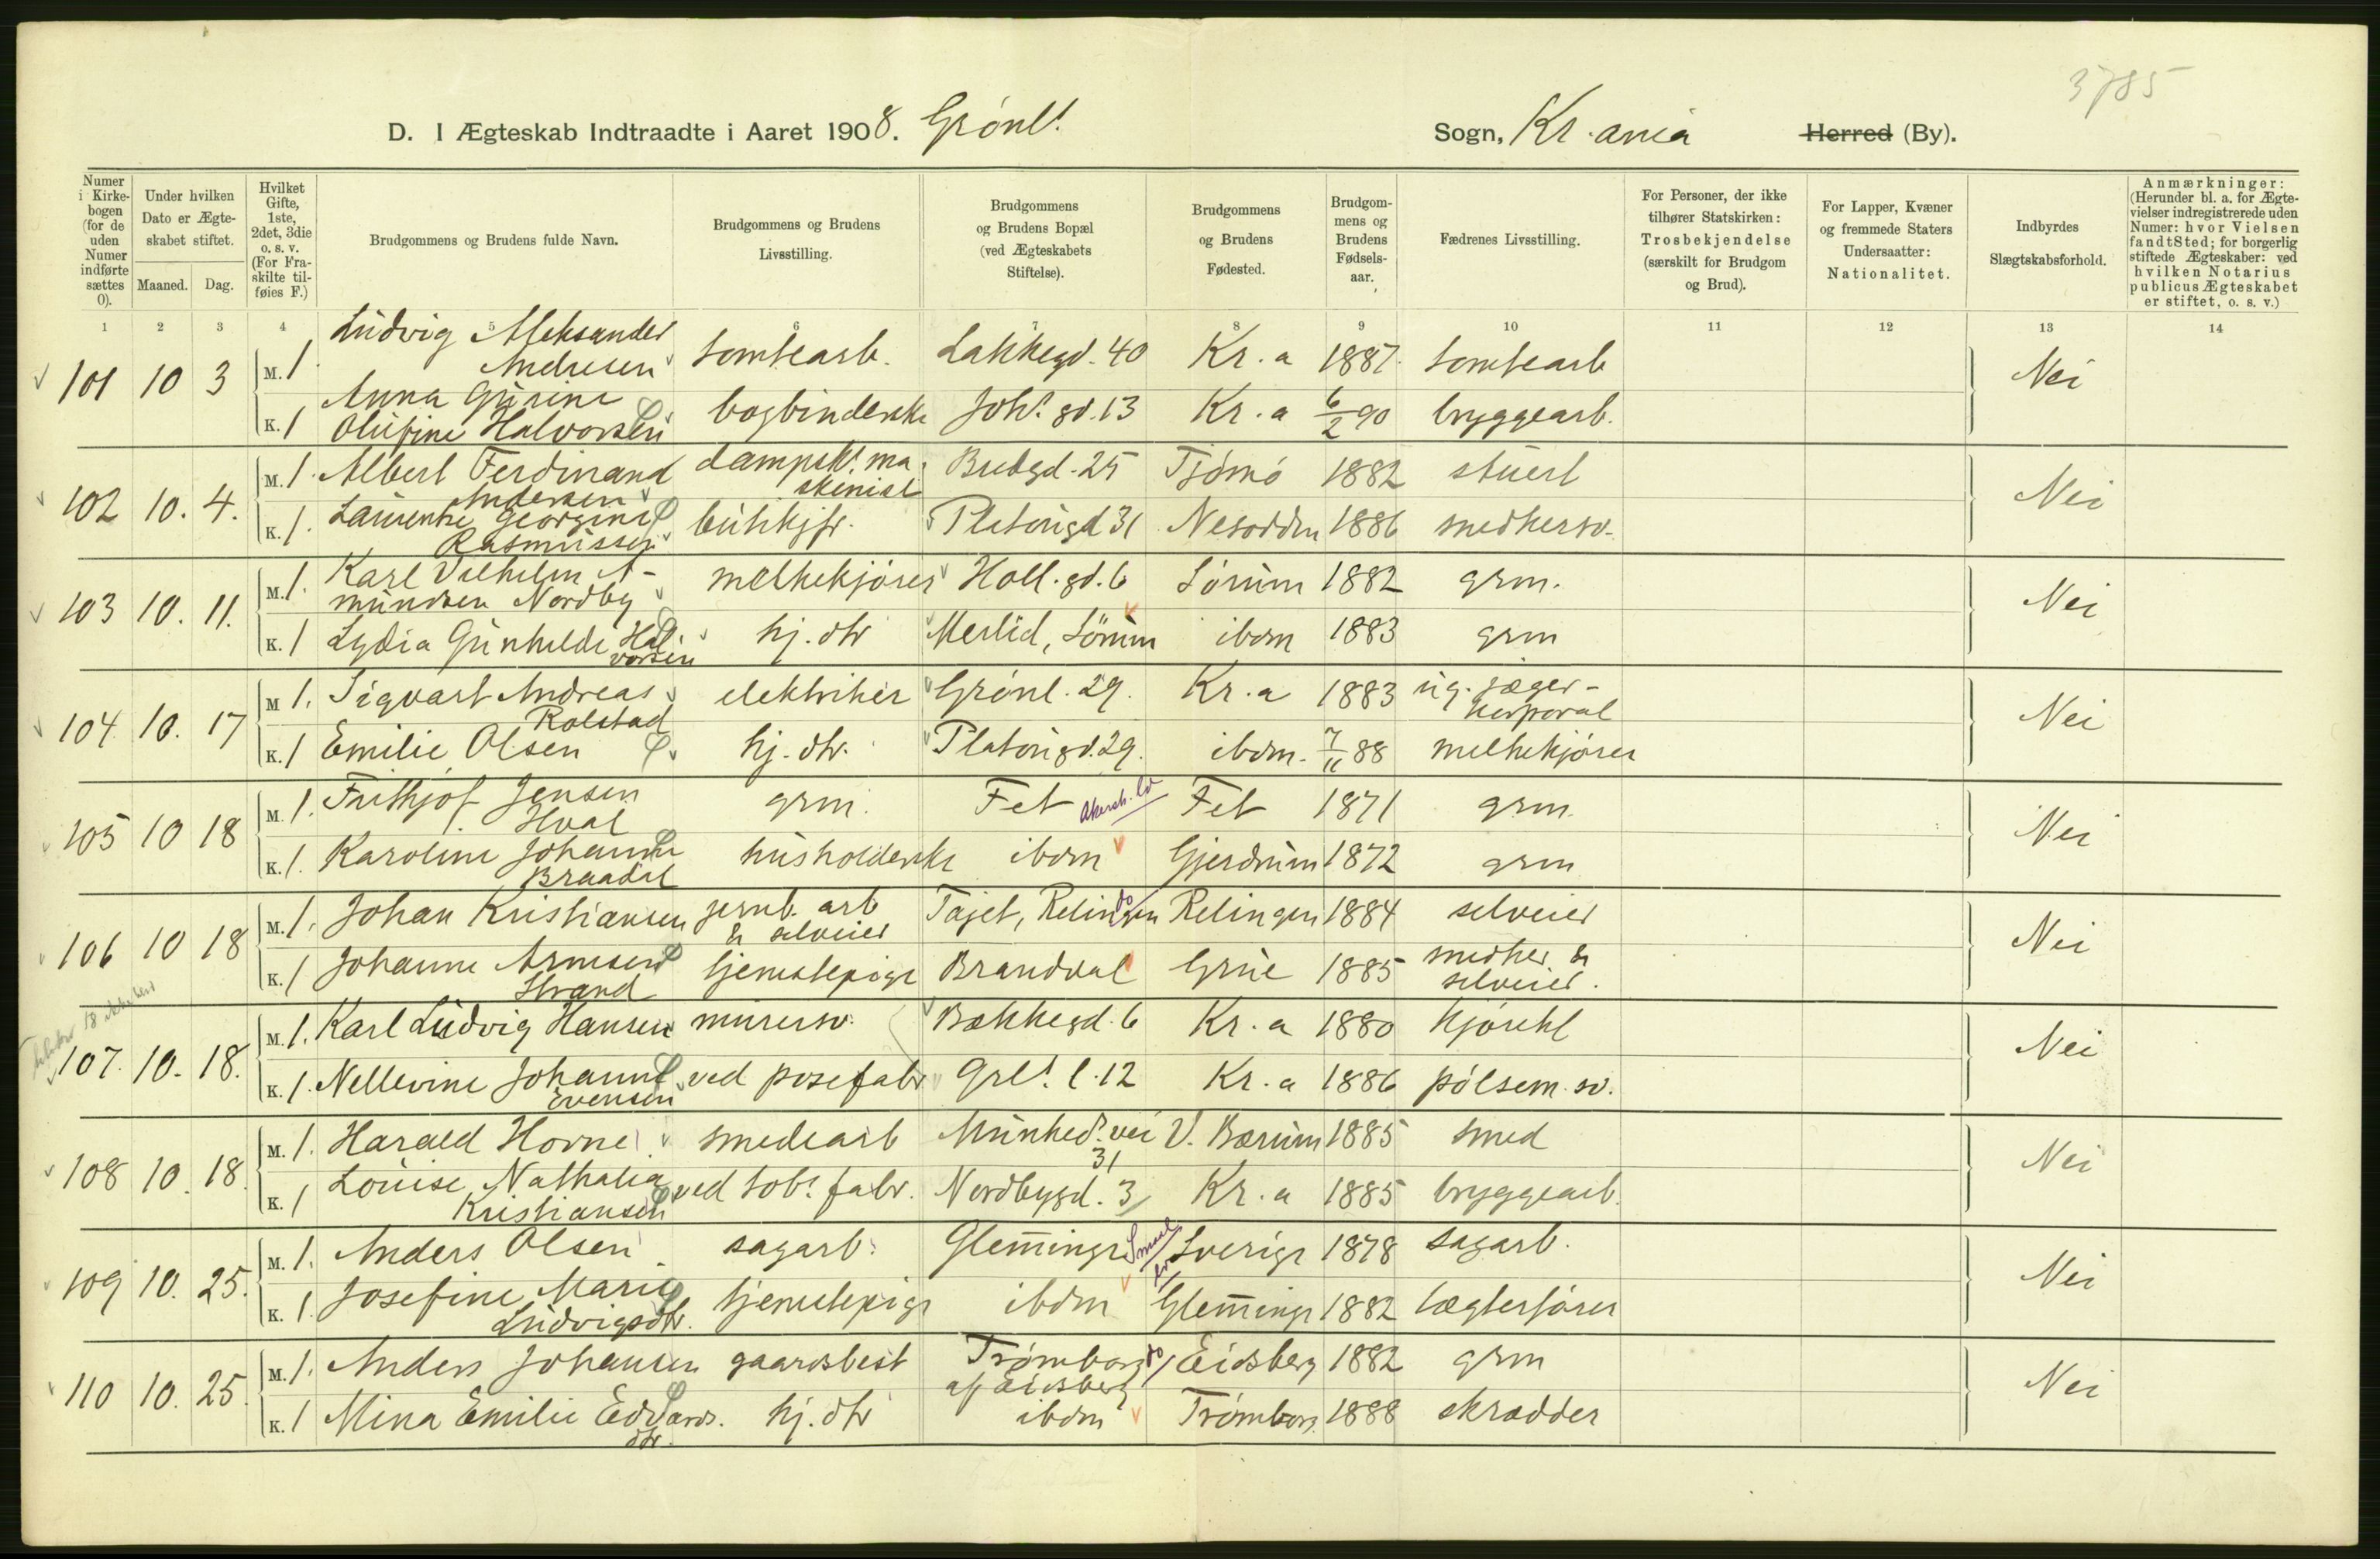 3785
D. I Ægteskab Indtraadte i Aaret 1908. Grønl.
Sogn, Kr.ania Herred (By).
Numer i Kirkebogen (for de uden Numer indførte sættes 0).
Under hvilken Dato er Ægteskabet stiftet.
Maaned. Dag.
Hvilket Gifte, 1ste, 2det, 3die o. s. v. (For Fraskilte tilføies F.)
Brudgommens og Brudens fulde Navn.
Brudgommens og Brudens Livsstilling.
Brudgommens og Brudens Bopæl (ved Ægteskabets Stiftelse).
Brudgommens og Brudens Fødested.
Brudgommens og Brudens Fødselsaar.
Fædrenes Livsstilling.
For Personer, der ikke tilhører Statskirken: Trosbekjendelse (særskilt for Brudgom og Brud).
For Lapper, Kvæner og fremmede Staters Undersaatter: Nationalitet.
Indbyrdes Slægtskabsforhold.
Anmærkninger: (Herunder bl. a. for Ægtevielser indregistrerede uden Numer: hvor Vielsen fandt Sted; for borgerlig stiftede Ægteskaber: ved hvilken Notarius publicus Ægteskabet er stiftet, o. s. v.)
1 2 3 4 5 6 7 8 9 10 11 12 13 14
101 10 3 M. 1. Ludvig Aleksander Andresen tomtearb. Lakkegd. 40 Kr.a 1887. tomtearb Nei
K. 1 Anna Gurine Olufine Halvorsen bogbinderske Johs. gd. 13 Kr.a 6/2 90 bryggearb.
102 10. 4. M. 1. Albert Ferdinand Andersen dampsk. maskinist Bredgd. 25 Tjømø 1882 stuert Nei
K. 1. Laurentze Georgine Rasmussen butikjfr. Platougd 31 Nesodden 1886 snedkersv.
103 10. 11. M. 1. Karl Vilhelm Amundsen Nordby melkekjører Holl. gd. 6 Sørum 1882 grm. Nei
K. 1 Lydia Gunhilde Halvorsen hj. dtr Merlid, Sørum ibdm 1883 grm
104 10. 17 M 1. Sigvart Andreas Rolstad elektriker Grønl. 29. Kr.a 1883 ug. jæger-korporal Nei
K. 1 Emilie Olsen hj. dtr. Platougd. 29. ibdm. 7/11 88 melkekjører
105 10 18 M. 1. Frithjof Jensen Hval grm. Fet Akersh. Fet 1871 grm. Nei
K. 1. Karoline Johanne Braadal husholderske ibdm Gjerdrum 1872 grm
106 10 18 M. 1. Johan Kristiansen jernb. arb & selveier Tajet, Relingen do Relingen 1884 selveier Nei
K. 1 Johanne Arnesen Strand tjenestepige Brandval Grue 1885 snedker & selveier.
107. 10. 18. M. 1. Karl Ludvig Hansen murersv. Bakkegd. 6 Kr.a 1880 kjørekl Nei
K. 1. Nellevine Johanne Evensen ved posefabr Grl. l. 12 Kr.a 1886 pølsem. sv.
108 10. 18. M. 1. Harald Horne smedearb Munked. vei 31 V. Bærum 1885 smed Nei
K. 1 Louise Nathalia Kristiansen ved tob. fabr. Nordbygd. 3 Kr.a 1885 bryggearb.
109 10. 25. M. 1. Anders Olsen sagarb. Glemminge Sverige 1878 sagarb. Nei
K. 1. Josefine Marie Ludvigsdtr. tjenestepige ibdm Glemminge 1882 lægterfører
110 10. 25. M. 1. Anders Johansen gaardsbest Trømborg af Eidsberg do Eidsberg 1882 grm Nei
K. 1 Mina Emilie Edvardsdtr. hj. dtr ibdm Trømborg 1888 skrædder